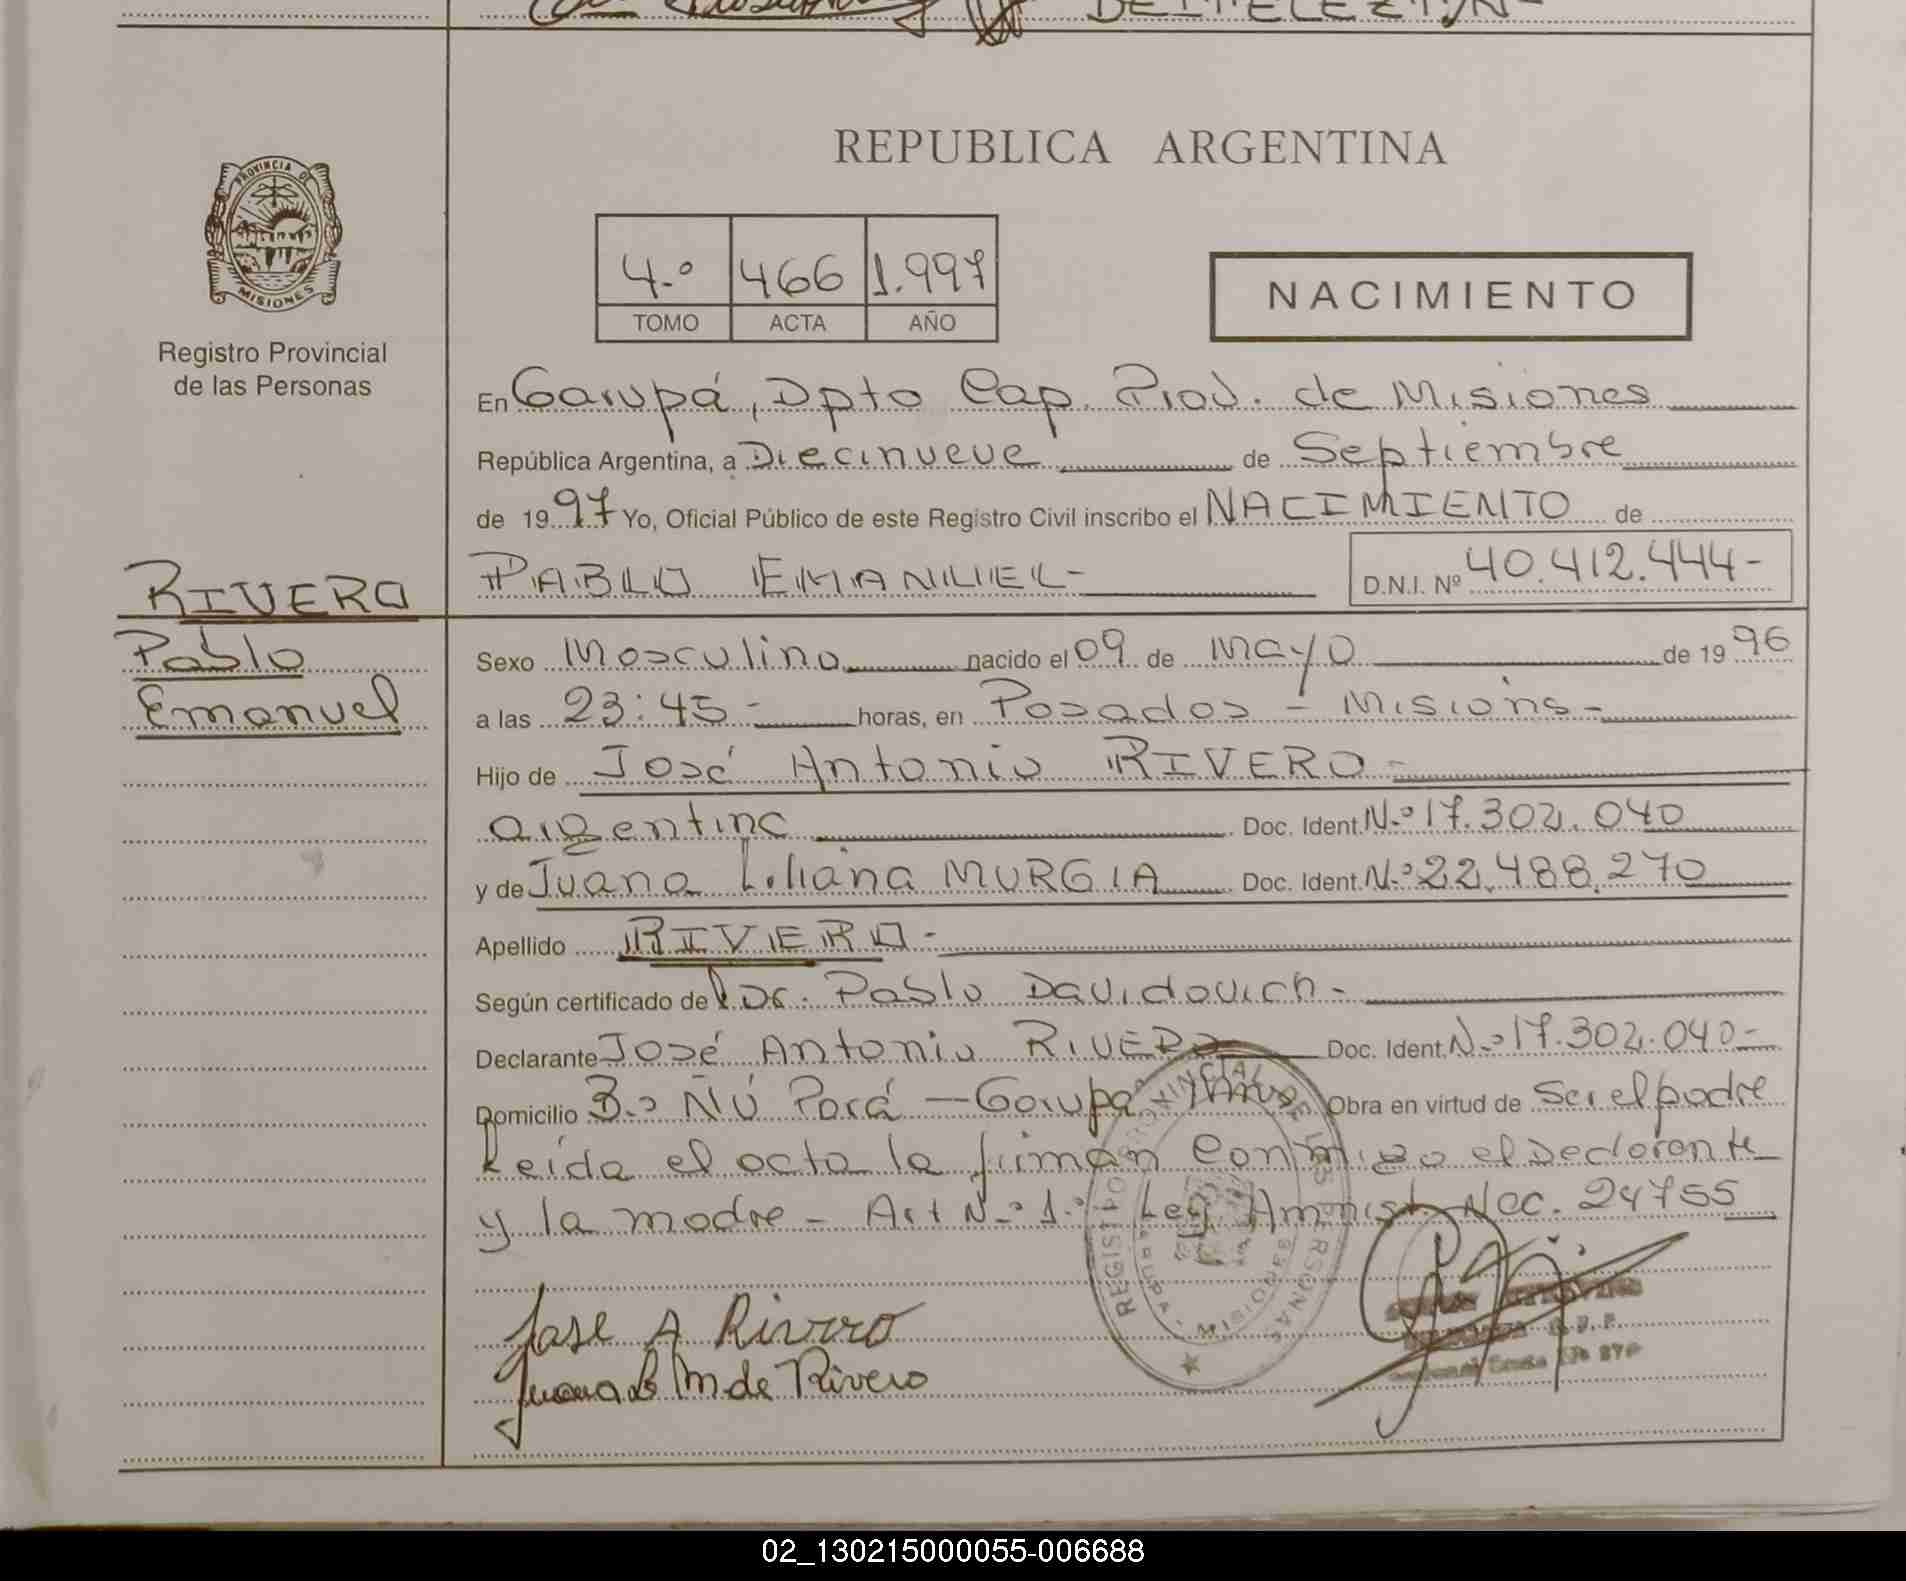 REPUBLICA ARGENTINA
PROVINCIA DE
MISIONES
Registro Provincial
de las Personas
4.º 466 1.997
TOMO ACTA AÑO
NACIMIENTO
En Garupá, Dpto Cap. Prov. de Misiones
República Argentina, a Diecinueve de Septiembre
de 1997 Yo, Oficial Público de este Registro Civil inscribo el NACIMIENTO de
RIVERO
PABLO EMANUEL- D.N.I. Nº 40.412.444-
Pablo
Emanuel
Sexo Masculino nacido el 09 de Mayo de 1996
a las 23:45- horas, en Posadas - Misions-
Hijo de José Antonio RIVERO-
argentino Doc. Ident. N.º 17.302.040
y de Juana Liliana MURGIA Doc. Ident. N.º 22.488.270
Apellido RIVERO-
Según certificado de Dr. Pablo Davidovich-
Declarante José Antonio RIVERO Doc. Ident. N.º 17.302.040-
Domicilio B.º Ñú Porá - Garupá Mnes Obra en virtud de Ser el padre
Leida el acta la firman Conmigo el Declarante
y la madre - Art N.º 1.º Ley Amnist. Nac. 24755
REGISTRO PROVINCIAL DE LAS PERSONAS
GARUPA - MISIONES
Jose A Rivero
Juana L M de Rivero
02_130215000055-006688